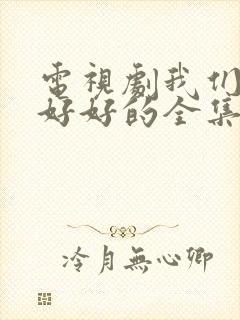 電視劇我们
好好的全集
冷月無心卿